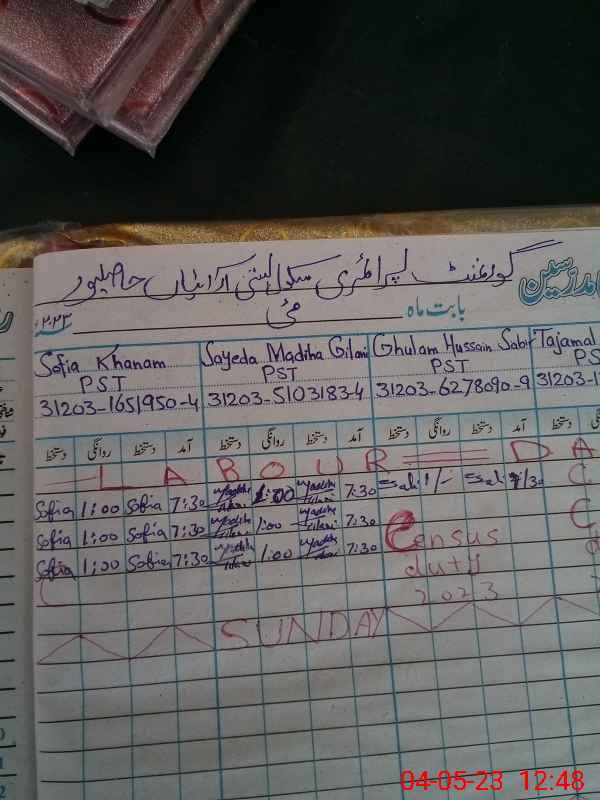 گورنمنٹ پرائمری سکول بستی ارائیاں حاصلپور
بابت ماہ مئی ۲۰۲۳ء
Sofia Khanam Sayeda Madiha Gilani Ghulam Hussain Sabir Tajamal
PST PST PST PS
31203-1651950-4 31203-5103183-4 31203-6278090-9 31203-1
دستخط آمد دستخط روانگی دستخط آمد دستخط روانگی دستخط آمد دستخط روانگی دستخط
LABOUR DA
Sofia 1:00 Sofia 7:30 1:00 7:30 1/- 7/30 C
Sofia 1:00 Sofia 7:30 1:00 7:30 Census C
Sofia 1:00 Sofia 7:30 1:00 7:30 duty d
2023
SUNDAY
04-05-23 12:48